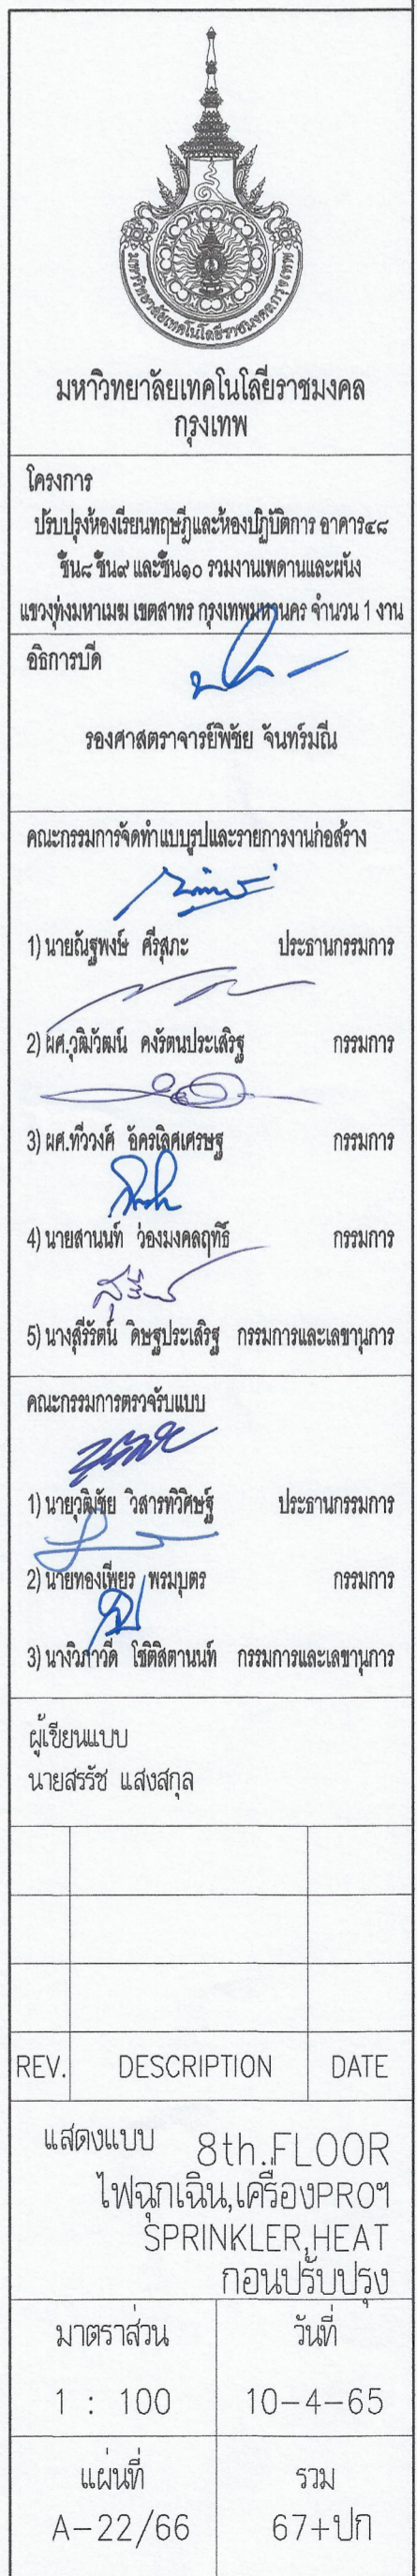 มหาวิทยาลัยเทคโนโลยีราชมงคลกรุงเทพ
มหาวิทยาลัยเทคโนโลยีราชมงคล
กรุงเทพ
โครงการ
ปรับปรุงห้องเรียนทฤษฎีและห้องปฏิบัติการ อาคาร๔๘
ชั้น๘ ชั้น๙ และชั้น๑๐ รวมงานเพดานและผนัง
แขวงทุ่งมหาเมฆ เขตสาทร กรุงเทพมหานคร จำนวน 1 งาน
อธิการบดี
รองศาสตราจารย์พิชัย จันทร์มณี
คณะกรรมการจัดทำแบบรูปและรายการงานก่อสร้าง
1) นายณัฐพงษ์ ศรีสุภะ ประธานกรรมการ
2) ผศ.วุฒิวัฒน์ คงรัตนประเสริฐ กรรมการ
3) ผศ.ทวีวงศ์ อัครเลิศเศรษฐ กรรมการ
4) นายสานนท์ ว่องมงคลฤทธิ์ กรรมการ
5) นางสุรีรัตน์ ดิษฐประเสริฐ กรรมการและเลขานุการ
คณะกรรมการตรวจรับแบบ
1) นายวุฒิชัย วิสารทวิศิษฐ์ ประธานกรรมการ
2) นายทองเพียร พรมบุตร กรรมการ
3) นางวิภาวดี โชติสิตานนท์ กรรมการและเลขานุการ
ผู้เขียนแบบ
นายสรรัช แสงสกุล
REV. DESCRIPTION DATE
แสดงแบบ 8th.FLOOR
ไฟฉุกเฉิน,เครื่องPROฯ
SPRINKLER,HEAT
ก่อนปรับปรุง
มาตราส่วน วันที่
1 : 100 10-4-65
แผ่นที่ รวม
A-22/66 67+ปก